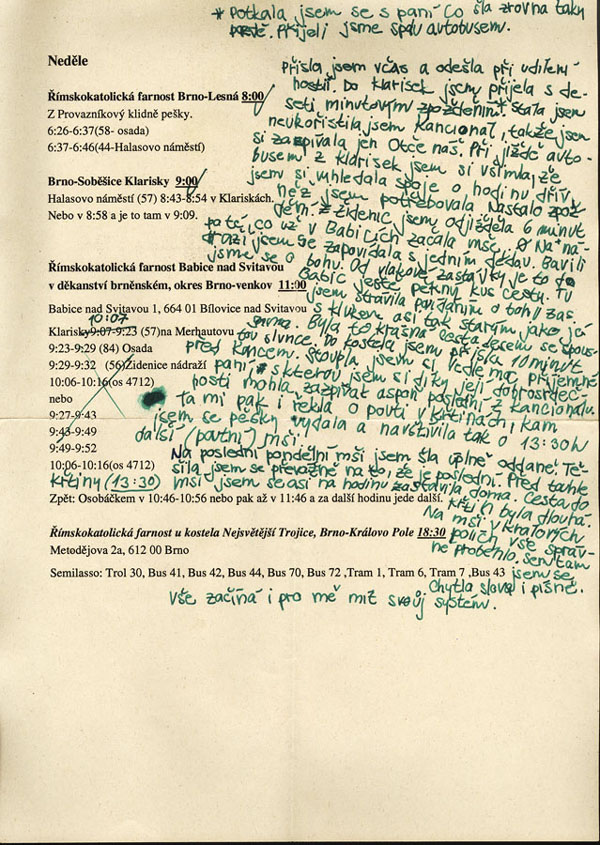 * Potkala jsem se s paní co šla zrovna taky
Přijeli jsme spolu autobusem.
Neděle
Přišla jsem včas a odešla při udílení
hostií. Do Klarisek jsem přijela s de-
seti minutovým zpožděním.
neukořistila jsem kancionál, takže jsem
si zazpívala jen Otče náš. Při jízdě auto-
busem z klarisek jsem si všimla, že
jsem si vyhledala spoje o hodinu dřív,
než jsem potřebovala. Nastalo zpož-
dění. z Židenic jsem odjížděla 6 minut
poté, co už v Babicích začala mše. Na ná-
draží jsem se zapovídala s jedním dědou. Bavili
jsme se o bohu. Od vlakové zastávky je to do
Babic ještě pěkný kus cesty. Tu
jsem strávila povídáním o bohu zas
s klukem asi tak starým jako já
sama. Byla to krásná cesta lesem se spous-
tou slunce. Do kostela jsem přišla 10 minut
před koncem. Stoupla jsem si vedle moc příjemné
paní * s kterou jsem si díky její dobrosrdeč-
nosti mohla zazpívat aspoň poslední z kancionálu.
Ta mi pak i řekla o pouti v Křtinách, kam
jsem se pěšky vydala a navštívila tak o 13:30h
další (poutní) mši!
Na poslední pondělní mši jsem šla úplně oddaně. Tě-
šila jsem se převážně na to, že je poslední. Před touhle
mší jsem se asi na hodinu zastavila doma. Cesta do
Křtin byla dlouhá.
Na mši v Královych
polích vše správ-
ně proběhlo. Sem tam
jsem se
chytla slova i písně.
Vše začíná i pro mě mít svůj systém.
Římskokatolická farnost Brno-Lesná 8:00
Z Provazníkový klidně pešky.
6:26-6:37(58- osada)
6:37-6:46(44-Halasovo náměstí)
Brno-Soběšice Klarisky 9:00
Halasovo náměstí (57) 8:43-8:54 v Klariskách.
Nebo v 8:58 a je to tam v 9:09.
Římskokatolická farnost Babice nad Svitavou
v děkanství brněnském, okres Brno-venkov 11:00
Babice nad Svitavou 1, 664 01 Bílovice nad Svitavou
10:07
Klarisky 9:07-9:23 (57)na Merhautovu
9:23-9:29 (84) Osada
9:29-9:32 (56)Židenice nádraží
10:06-10:16(os 4712)
nebo
9:27-9:43
9:43-9:49
9:49-9:52
10:06-10:16(os 4712)
Křtiny (13:30)
Zpět: Osobáčkem v 10:46-10:56 nebo pak až v 11:46 a za další hodinu jede další.
Římskokatolická farnost u kostela Nejsvětější Trojice, Brno-Královo Pole 18:30
Metodějova 2a, 612 00 Brno
Semilasso: Trol 30, Bus 41, Bus 42, Bus 44, Bus 70, Bus 72 ,Tram 1, Tram 6, Tram 7 ,Bus 43